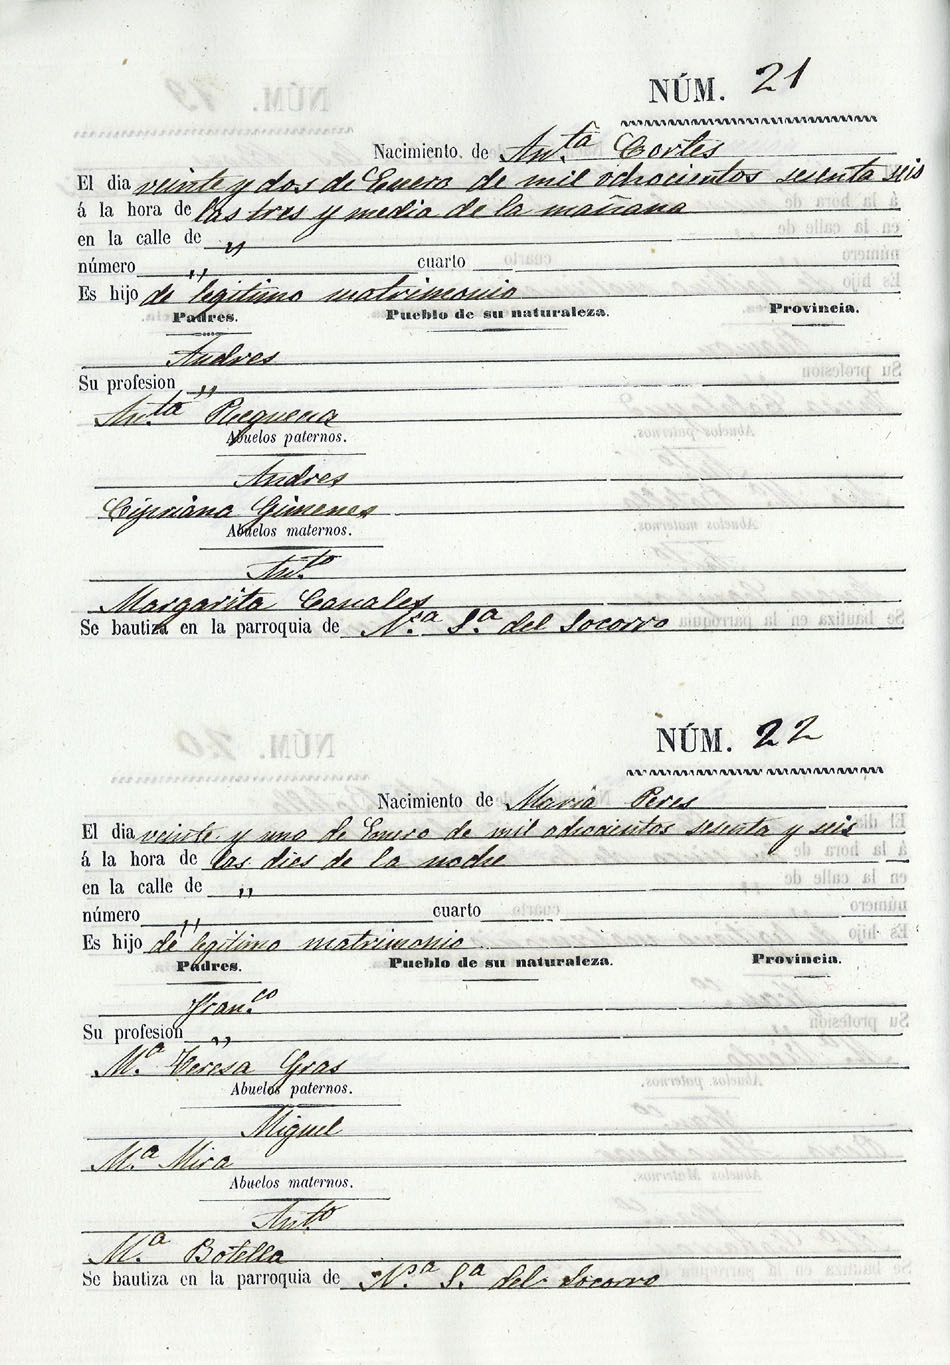 NÚM. 21
Nacimiento de An.ta Cortes
El dia veinte y dos de Enero de mil ochocientos sesenta seis
á la hora de las tres y media de la mañana
en la calle de „
número „ cuarto
Es hijo de legitimo matrimonio
Padres. Pueblo de su naturaleza. Provincia.
Andres
Su profesion „
An.ta
Abuelos paternos.
Andres
Cipriana Gimenes
Abuelos maternos.
Ant.o
Margarita Canales
Se bautiza en la parroquia de N.a S.a del Socorro
NÚM. 22
Nacimiento de Maria Peres
El dia veinte y uno de Enero de mil ochocientos sesenta y seis
á la hora de las dies de la noche
en la calle de „
número „ cuarto
Es hijo de legitimo matrimonio
Padres. Pueblo de su naturaleza. Provincia.
Fran.co
Su profesion „
M.a Teresa Gras
Abuelos paternos.
Miguel
M.a Mira
Abuelos maternos.
Ant.o
M.a Botella
Se bautiza en la parroquia de N.a S.a del Socorro